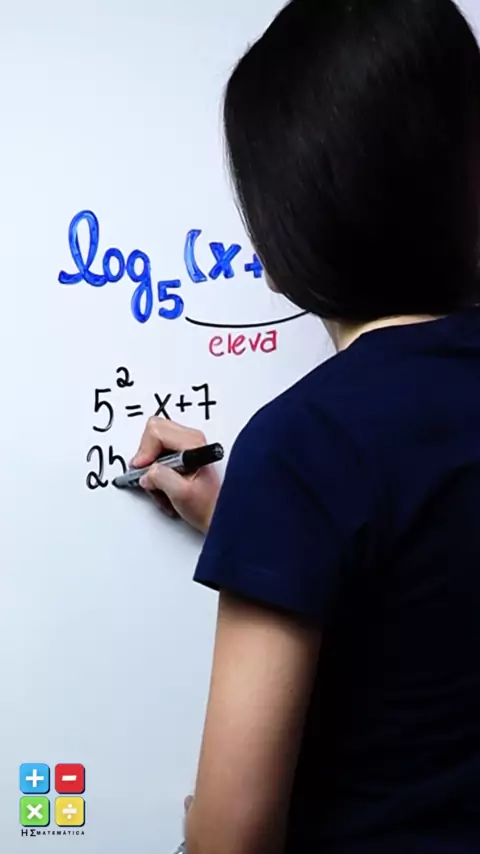 log₅(x+
eleva
5² = x+7
25
+ −
× ÷
HΣMATEMÁTICA